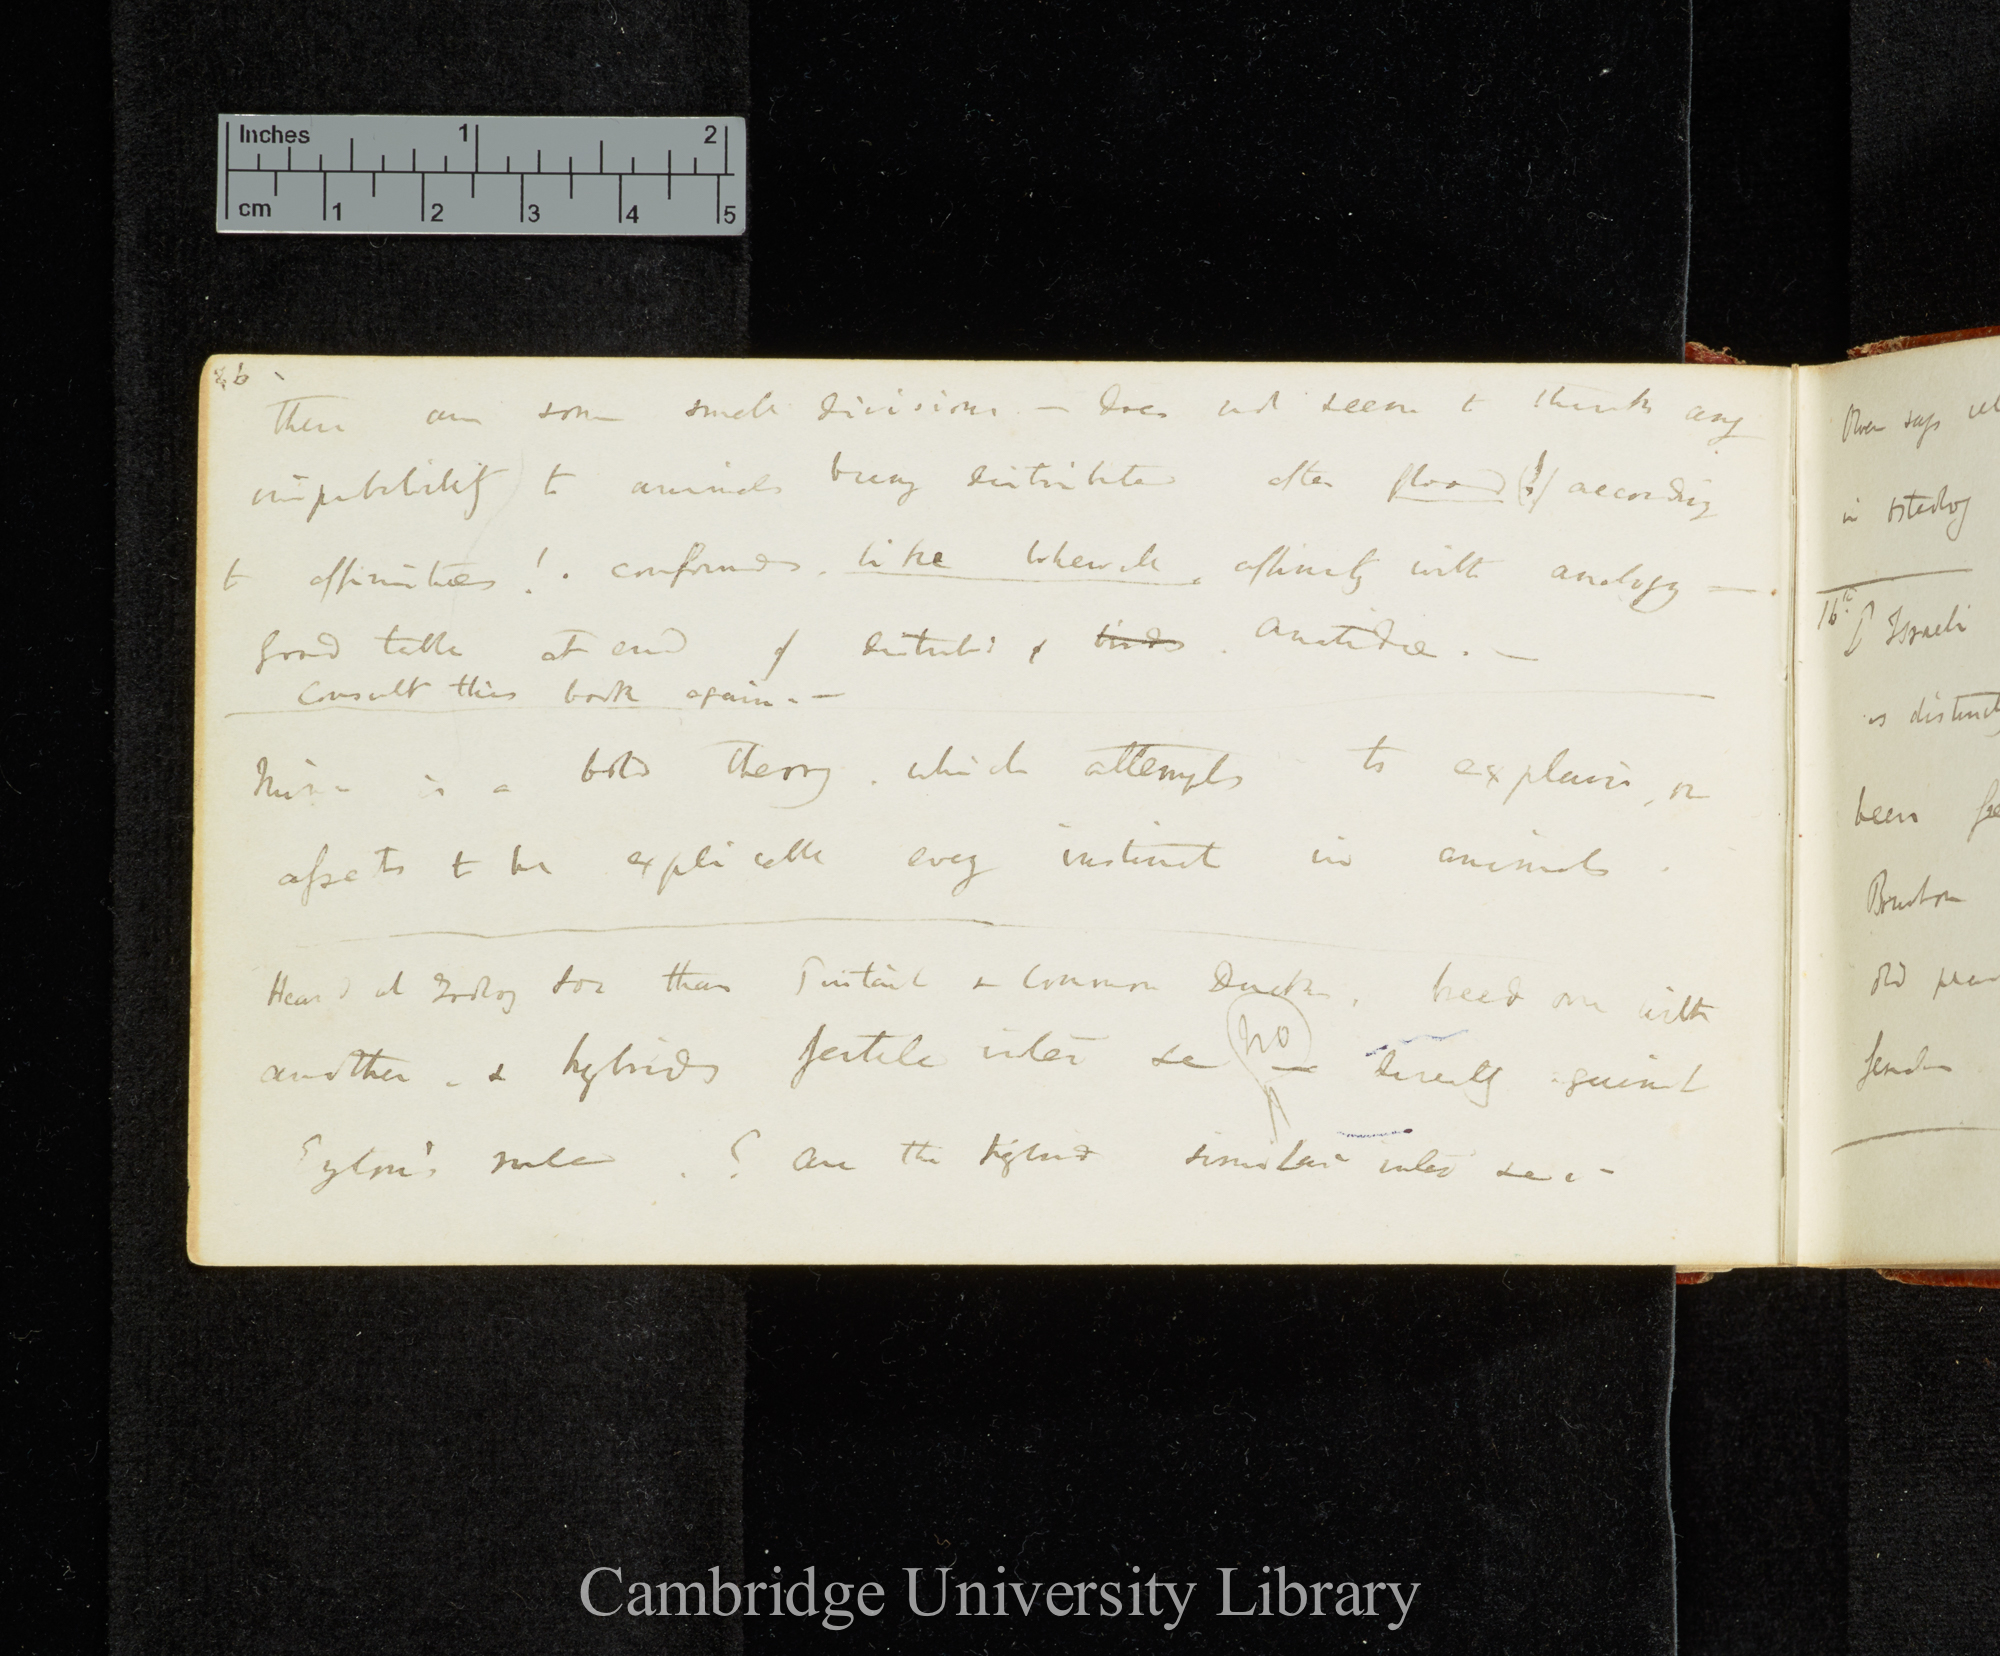 Inches 1 2
cm 1 2 3 4 5
26
There are some small divisions — does not seem to think any
improbability to animals being distributed after flood (!) according
to affinities!. confounds, like Whewell, affinity with analogy —
good table at end of distrib: of birds. Anatidae. —
Consult this book again. —
Mine is a bold theory, which attempts to explain, or
asserts to be explicable every instinct in animals.
Heard at Zoolog Soc that Pintail & Common Ducks, breed one with
another, & hybrids fertile inter se — directly against
no
Eyton's rule. ? are the hybrids similar inter se. —
Owen says
in
16th D'Israeli
is distinct
been
old
Cambridge University Library